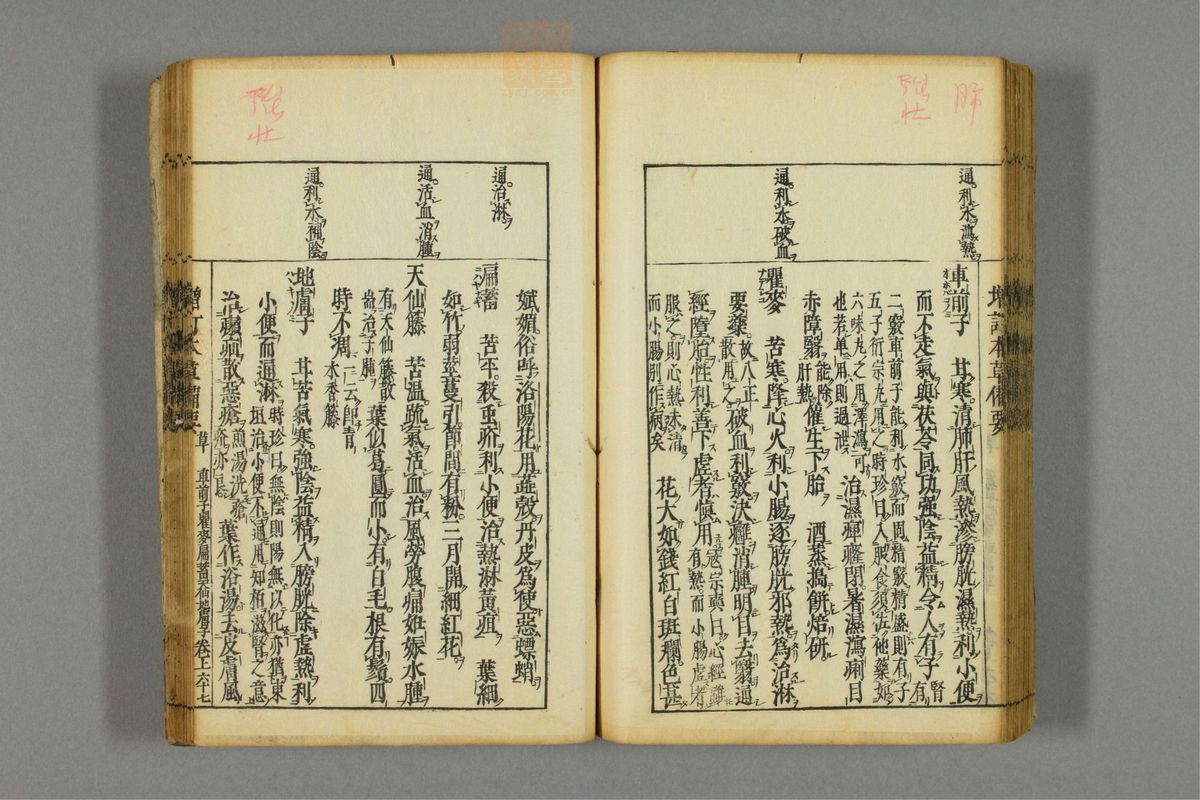 肺
強
壯
通利水瀉熱
車前子　甘寒清肺肝風熱滲膀胱濕熱利小便
而不走氣與茯苓同功強陰益精令人有子腎有
二竅車前子能利水竅而固精竅精盛則有子
五子衍宗丸用之時珍曰入服食須佐他藥如
六味丸之用澤瀉可
也若單用則過泄
治濕痹癃閉暑濕瀉痢目
赤障翳能除肝熱
催生下胎　酒蒸搗餅焙研
通利水破血
瞿麥　苦寒降心火利小腸逐膀胱邪熱為治淋
要藥故八正散用之
破血利竅決癰消腫明目去翳通
經墮胎性利善下虛者慎用
寇宗奭曰心經雖有熱而小腸虛者
服之則心熱未清
而小腸別作病矣
花大如錢紅白班斕色甚
強
壯
娬媚俗呼洛陽花用蕊殼丹皮為使惡螵蛸
通治淋
萹蓄　苦平殺蟲疥利小便治熱淋黃疸　葉細
如竹弱莖蔓引節間有粉三月開細紅花
通活血消腫
天仙藤　苦溫疏氣活血治風勞腹痛妊娠水腫
有天仙藤散
葉似葛圓而小有白毛根有鬚四
時不凋一云即青木香藤
通利水補陰
地膚子　甘苦氣寒強陰益精入膀胱除虛熱利
小便而通淋
時珍曰無陰則陽無以化亦猶東
垣治小便不通用知栢滋腎之意
治㿗疝散惡瘡煎湯洗瘡疥亦良
葉作浴湯去皮膚風
增訂本草備要
草
車前子瞿麥萹蓄天仙藤地膚子卷上六十七